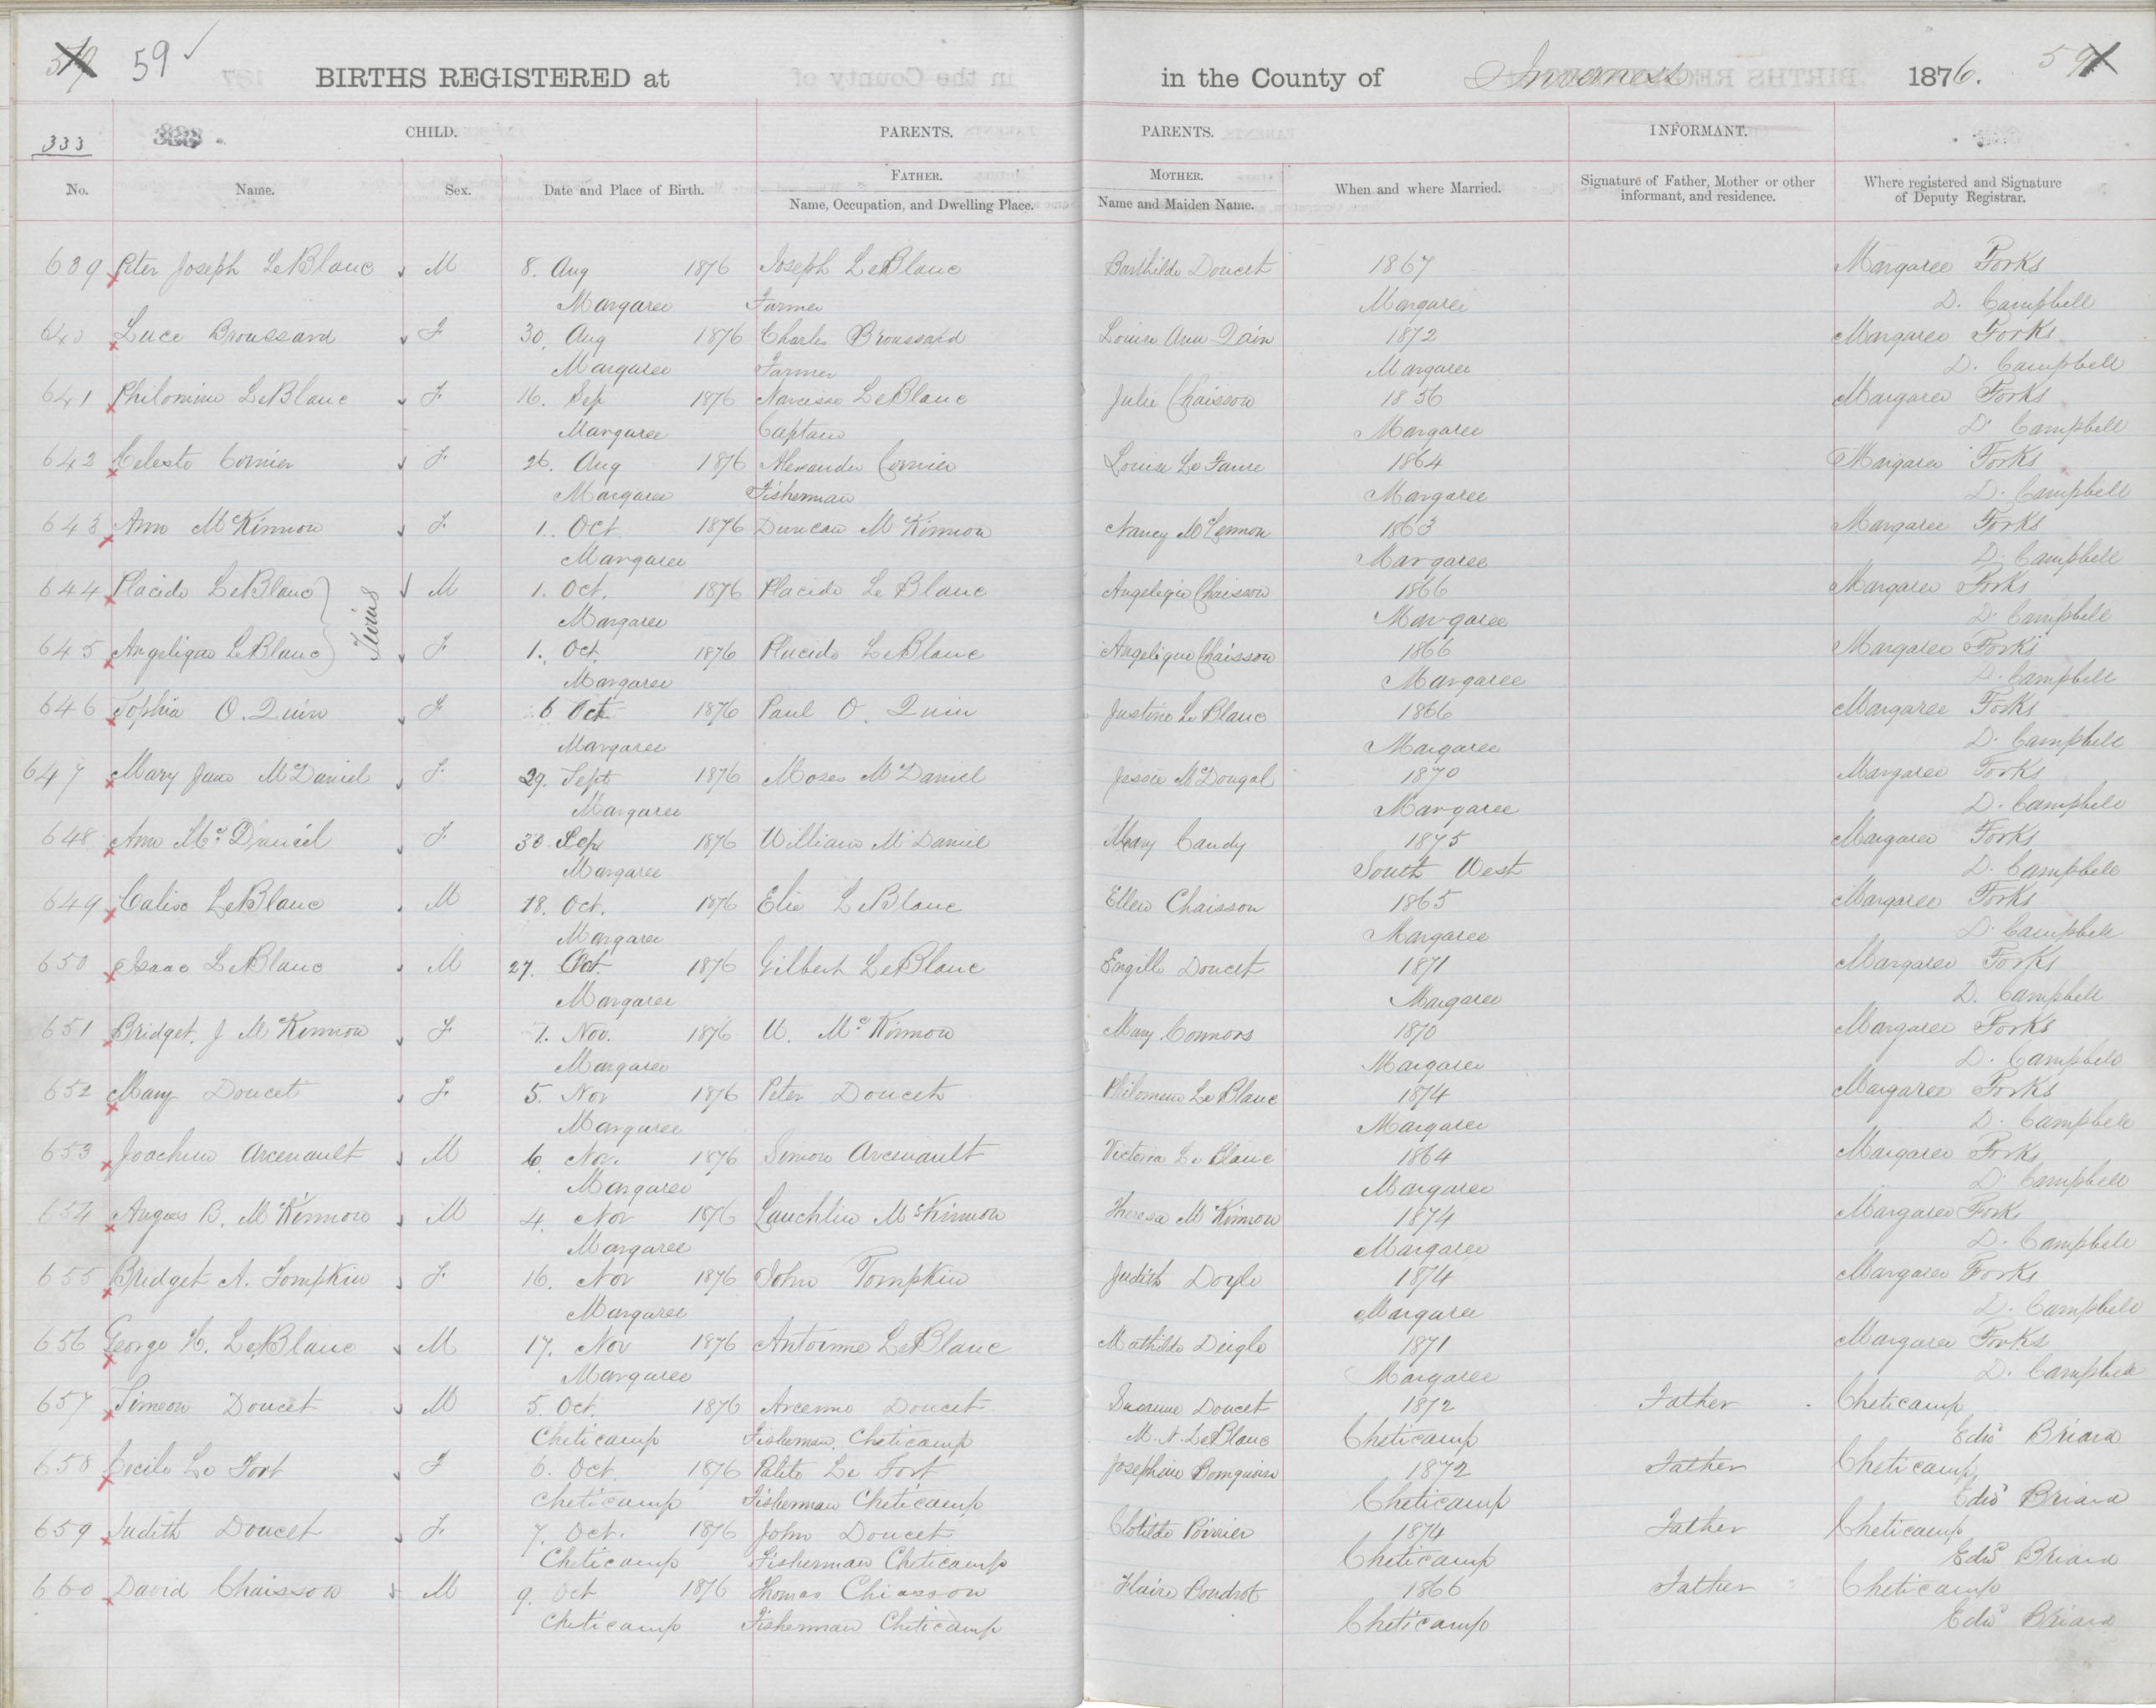 59 59 ✓ BIRTHS REGISTERED at in the County of Inverness 1876. 59
333 333. CHILD. PARENTS. PARENTS. INFORMANT.
No. Name. Sex. Date and Place of Birth. FATHER. Name, Occupation, and Dwelling Place. MOTHER. Name and Maiden Name. When and where Married. Signature of Father, Mother or other informant, and residence. Where registered and Signature of Deputy Registrar.
639 Peter Joseph LeBlanc M 8. Aug 1876 Joseph LeBlanc Barthilde Doucet 1867 Margaree Forks
Margaree Farmer Margaree D. Campbell
640 Luce Broussard F 30. Aug 1876 Charles Broussard Louise Ann 1872 Margaree Forks
Margaree Farmer Margaree D. Campbell
641 Philomine LeBlanc F 16. Sep 1876 Narcisse LeBlanc Julie Chaisson 1856 Margaree Forks
Margaree Captain Margaree D. Campbell
642 Celeste Cormier F 26. Aug 1876 Alexander Cormier Louise Le Faure 1864 Margaree Forks
Margaree Fisherman Margaree D. Campbell
643 Ann McKinnon F 1. Oct. 1876 Duncan McKinnon Nancy McLennon 1863 Margaree Forks
Margaree Margaree D. Campbell
644 Placide LeBlanc } Twins M 1. Oct. 1876 Placide LeBlanc Angeliqie Chaisson 1866 Margaree Forks
Margaree Margaree D. Campbell
645 Angelique LeBlanc } F 1. Oct. 1876 Placide LeBlanc Angelique Chaisson 1866 Margaree Forks
Margaree Margaree D. Campbell
646 Sophia O. Quin F 6 Oct 1876 Paul O. Quin Justine LeBlanc 1866 Margaree Forks
Margaree Margaree D. Campbell
647 Mary Jane McDaniel F. 29. Sept 1876 Moses McDaniel Jessie McDougal 1870 Margaree Forks
Margaree Margaree D. Campbell
648 Ann Mc Daniel F 30 Sep 1876 William McDaniel Mary Candy 1875 Margaree Forks
Margaree South West D. Campbell
649 Calixe LeBlanc M 18. Oct. 1876 Elie LeBlanc Ellen Chaisson 1865 Margaree Forks
Margaree Margaree D. Campbell
650 Isaac LeBlanc M 27. Oct. 1876 Gilbert LeBlanc Engille Doucet 1871 Margaree Forks
Margaree Margaree D. Campbell
651 Bridget. J McKinnon F 1. Nov. 1876 McKinnon Mary Connors 1870 Margaree Forks
Margaree Margaree D. Campbell
652 Mary Doucet F 5. Nov 1876 Peter Doucet Philomene LeBlanc 1874 Margaree Forks
Margaree Margaree D. Campbell
653 Joachim Arcenault M 6. Nov. 1876 Simon Arcenault Victoria LeBlanc 1864 Margaree Forks
Margaree Margaree D. Campbell
654 Angus B. McKinnon M 4. Nov 1876 Lauchlin McKinnon Theresa McKinnon 1874 Margaree Forks
Margaree Margaree D. Campbell
655 Bridget A. Tompkin F. 16. Nov 1876 John Tompkin Judith Doyle 1874 Margaree Forks
Margaree Margaree D. Campbell
656 George H. LeBlanc M 17. Nov 1876 Antoinne LeBlanc Mathilde Deigle 1871 Margaree Forks
Margaree Margaree D. Campbell
657 Simeon Doucet M 5. Oct. 1876 Arcenne Doucet Doucet 1872 Father Cheticamp
Cheticamp Fisherman, Cheticamp M. N. LeBlanc Cheticamp Edwd Briard
658 Cecile Le Fort F 6. Oct. 1876 Polite Le Fort Josephine 1872 Father Cheticamp,
Cheticamp Fisherman Cheticamp Cheticamp Edwd Briard
659 Judith Doucet F. 7. Oct. 1876 John Doucet Clotilde Poirier 1874 Father Cheticamp
Cheticamp Fisherman Cheticamp Cheticamp Edwd Briard
660 David Chaisson M 9. Oct 1876 Thomas Chiasson Flaire Boudrot 1866 Father Cheticamp
Cheticamp Fisherman Cheticamp Cheticamp Edwd Briard